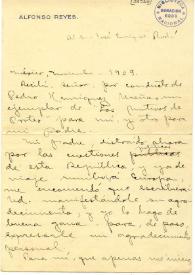 ALFONSO REYES.
BIBLIOTECA
DONACION
NACIONAL
Al Sr. José Enrique Rodó
México, Noviembre, 1909.
Recibí, señor, por conducto de
Pedro Henríquez Ureña,
ejemplar de los Motivos de
Proteo, para mí, y otro para
mi padre.
Mi padre, distraído ahora
por las cuestiones políticas
de esta República y
viaje a Europa,
me encomendó que escribiera a
Ud. manifestándole su agra-
decimiento, y yo lo hago de
buena gana, para, de paso,
expresarle mi agradecimiento
personal.
Para mí, que apenas me inicio